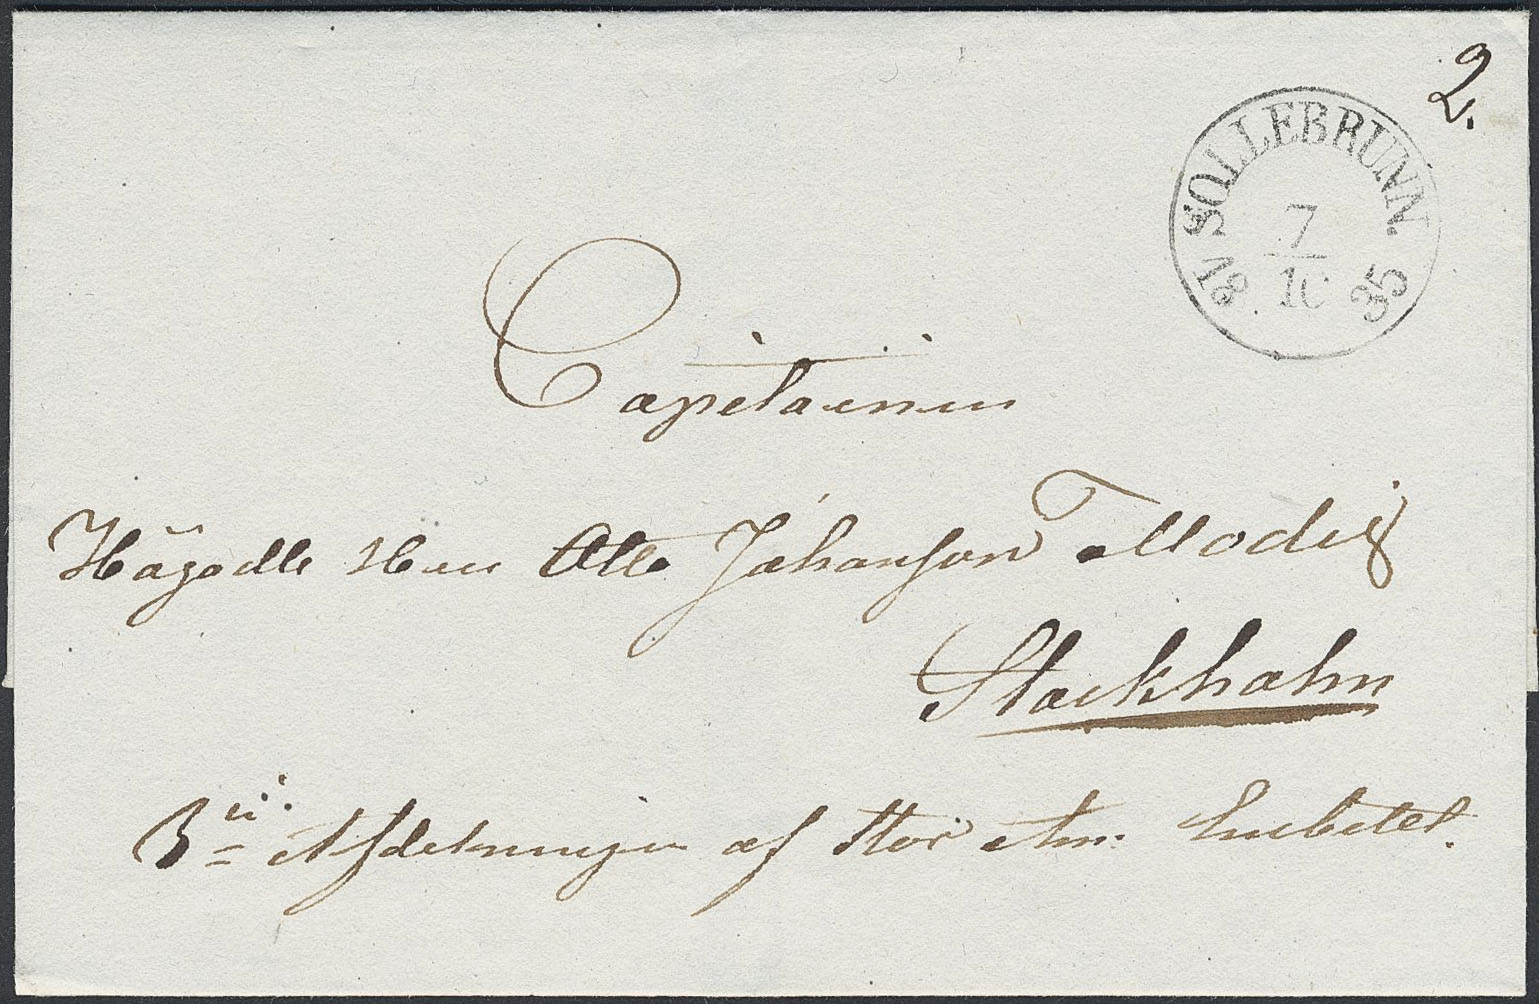 2.
SOLLEBRUNN.
7
10
35
Capitainen
Högädle Herr Otto Johanson Modig
Stockholm
3ii Afdelningen af Stor Am: Embetet.